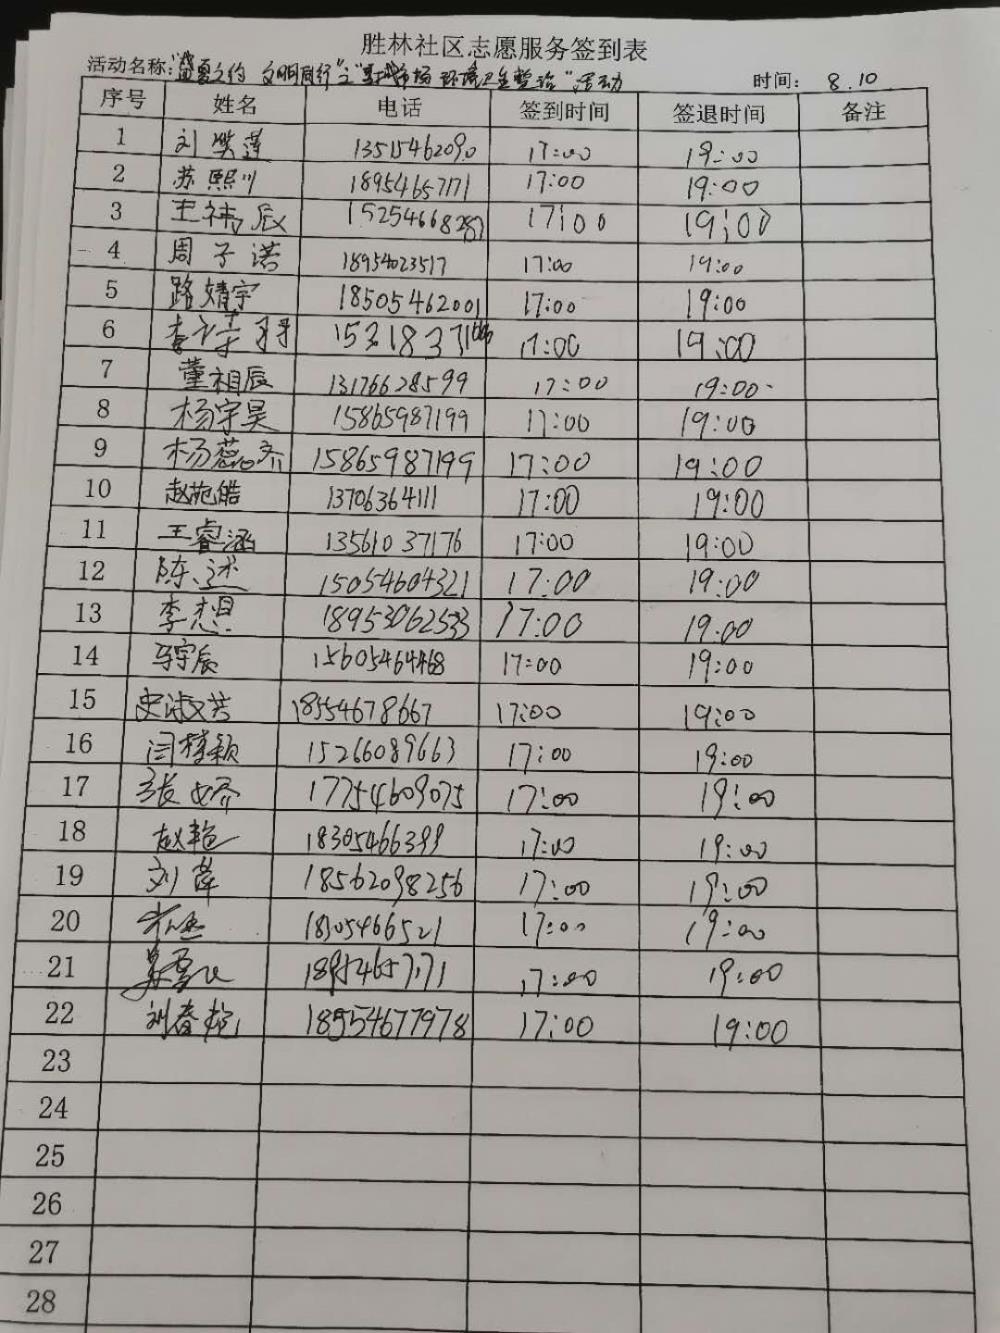 胜林社区志愿服务签到表
活动名称:"盛夏之约 文明同行"之" 市场环境卫生整治"活动 时间: 8.10
序号 姓名 电话 签到时间 签退时间 备注
1 刘 莲 13515462090 17:00 19:00
2 苏熙川 18954657171 17:00 19:00
3 王祎辰 15254668287 17:00 19:00
4 周子诺 18954023517 17:00 19:00
5 路婧宇 18505462001 17:00 19:00
6 李 17:00 19:00
7 董相辰 13176628599 17:00 19:00
8 杨宇昊 15865987199 17:00 19:00
9 杨蕊齐 15865987199 17:00 19:00
10 赵苑皓 13706364111 17:00 19:00
11 王睿涵 13561037176 17:00 19:00
12 陈述 15054604321 17:00 19:00
13 李想 18953062533 17:00 19:00
14 马宇辰 15605464468 17:00 19:00
15 史淑芳 18554678667 17:00 19:00
16 闫梓颖 15266089663 17:00 19:00
17 张娇 17754609075 17:00 19:00
18 赵艳 18305466399 17:00 19:00
19 刘萍 18562098256 17:00 19:00
20 18305466521 17:00 19:00
21 18954657171 17:00 19:00
22 刘春艳 18954677978 17:00 19:00
23
24
25
26
27
28